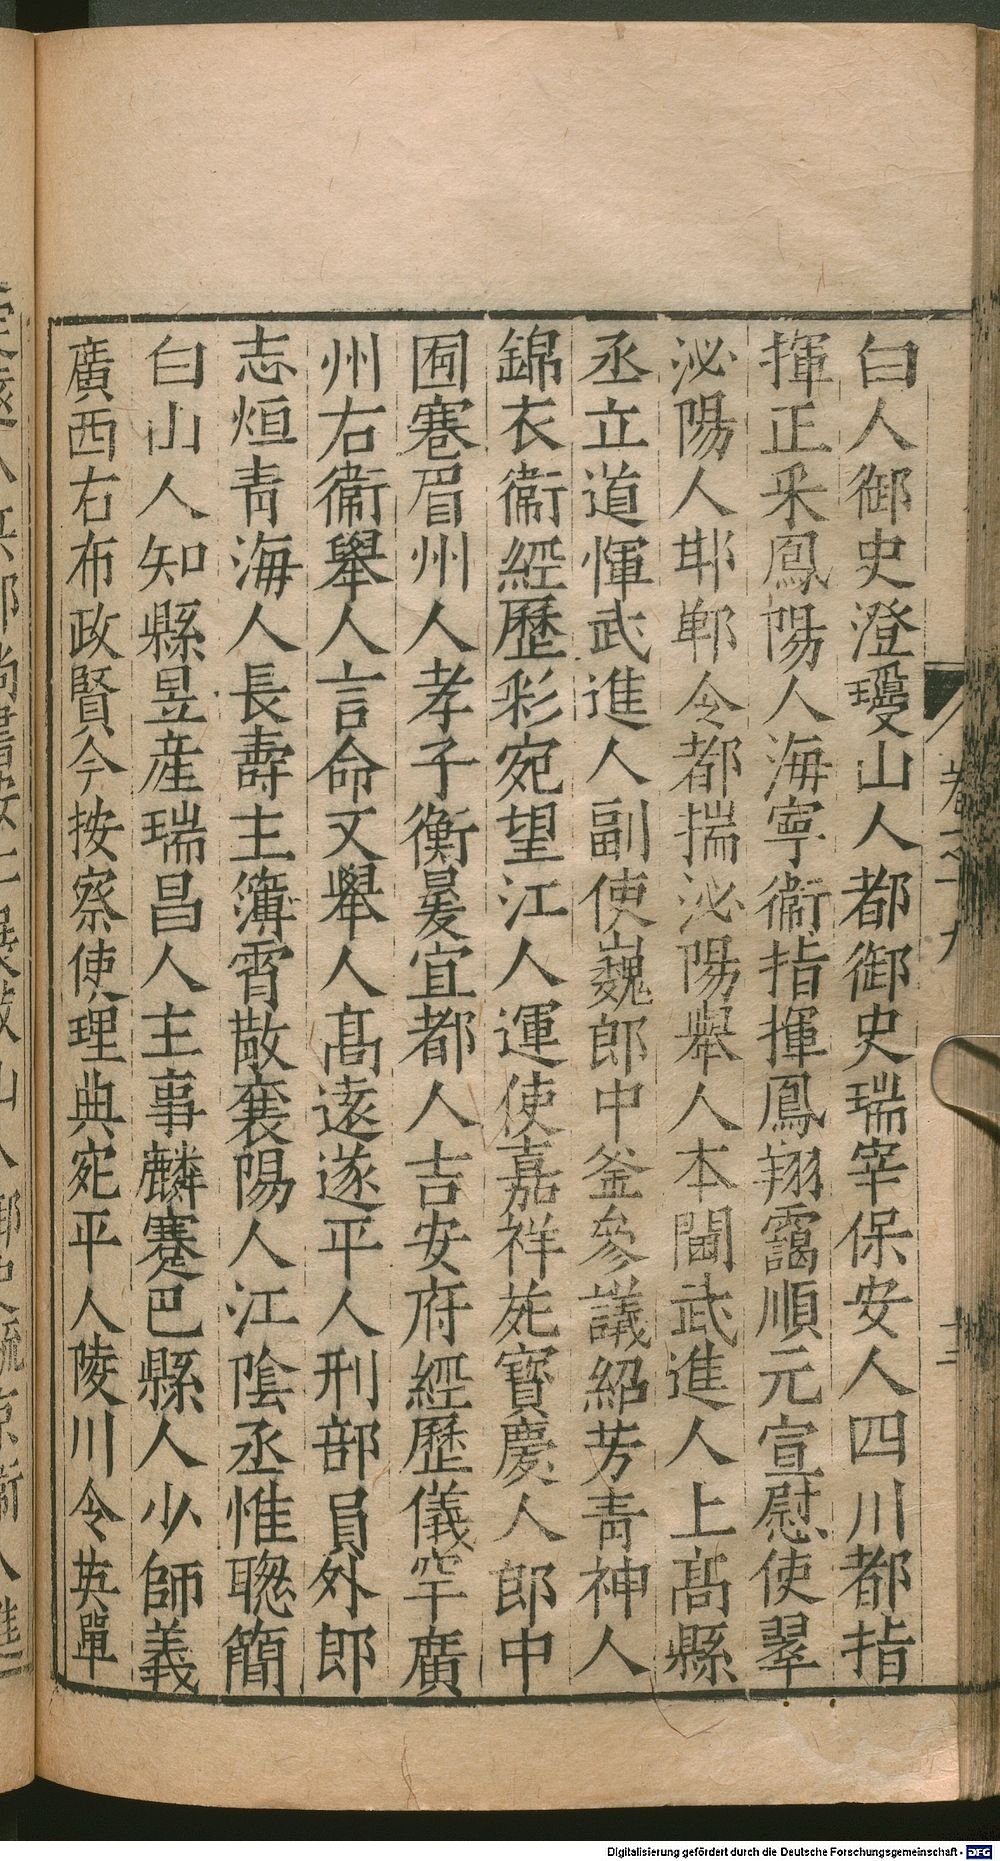 白人御史澄璦山人都御史瑞宰保安人四川都指
揮正釆鳳陽人海寧衞指揮鳳翔靄順元宣慰使翠
泌陽人邯鄲令都揣泌陽舉人本閩武進人上髙縣
丞立道惲武進人副使巍郎中釜參議紹芳青神人
錦衣衞經歷彩宛望江人運使嘉祥茈寳慶人郎中
囿寋眉州人孝子衡㬅宜都人吉安府經歷儀罕廣
州右衞舉人言命文舉人髙逺遂平人刑部員外郎
志烜青海人長壽主簿霄散襄陽人江隂丞惟聦簡
白山人知縣昱産瑞昌人主事麟蹇巴縣人少師義
廣西右布政賢今按察使理典宛平人陵川令英單
卷之十九
十三
Digitalisierung gefördert durch die Deutsche Forschungsgemeinschaft - DFG